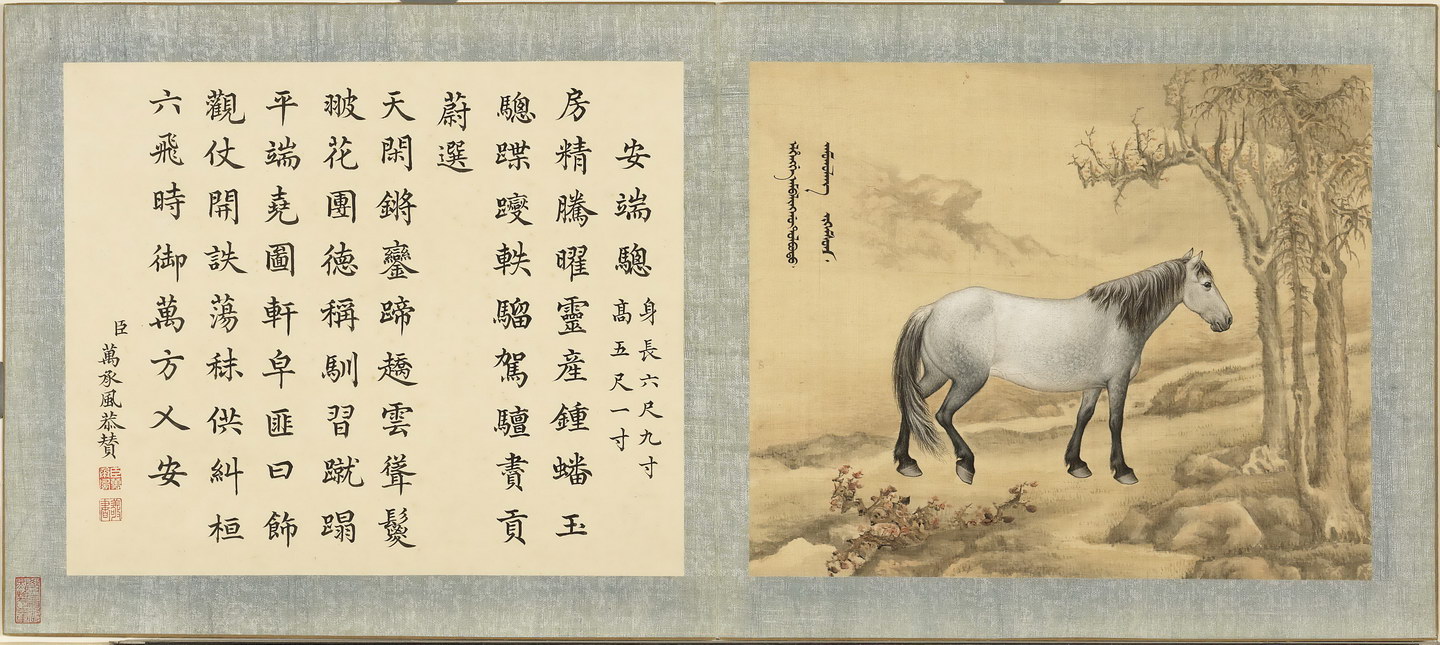 安端驄 身長六尺九寸
高五尺一寸
房精騰曜靈產鍾蟠玉
驄蹀躞軼騮駕驙賮貢
蔚選
天閑鏘鑾蹄趫雲聳鬉
翍花團德稱馴習蹴蹋
平端堯圖軒皁匪曰飾
觀仗開詄蕩秣供糾桓
六飛時御萬方乂安
臣萬承風恭贊